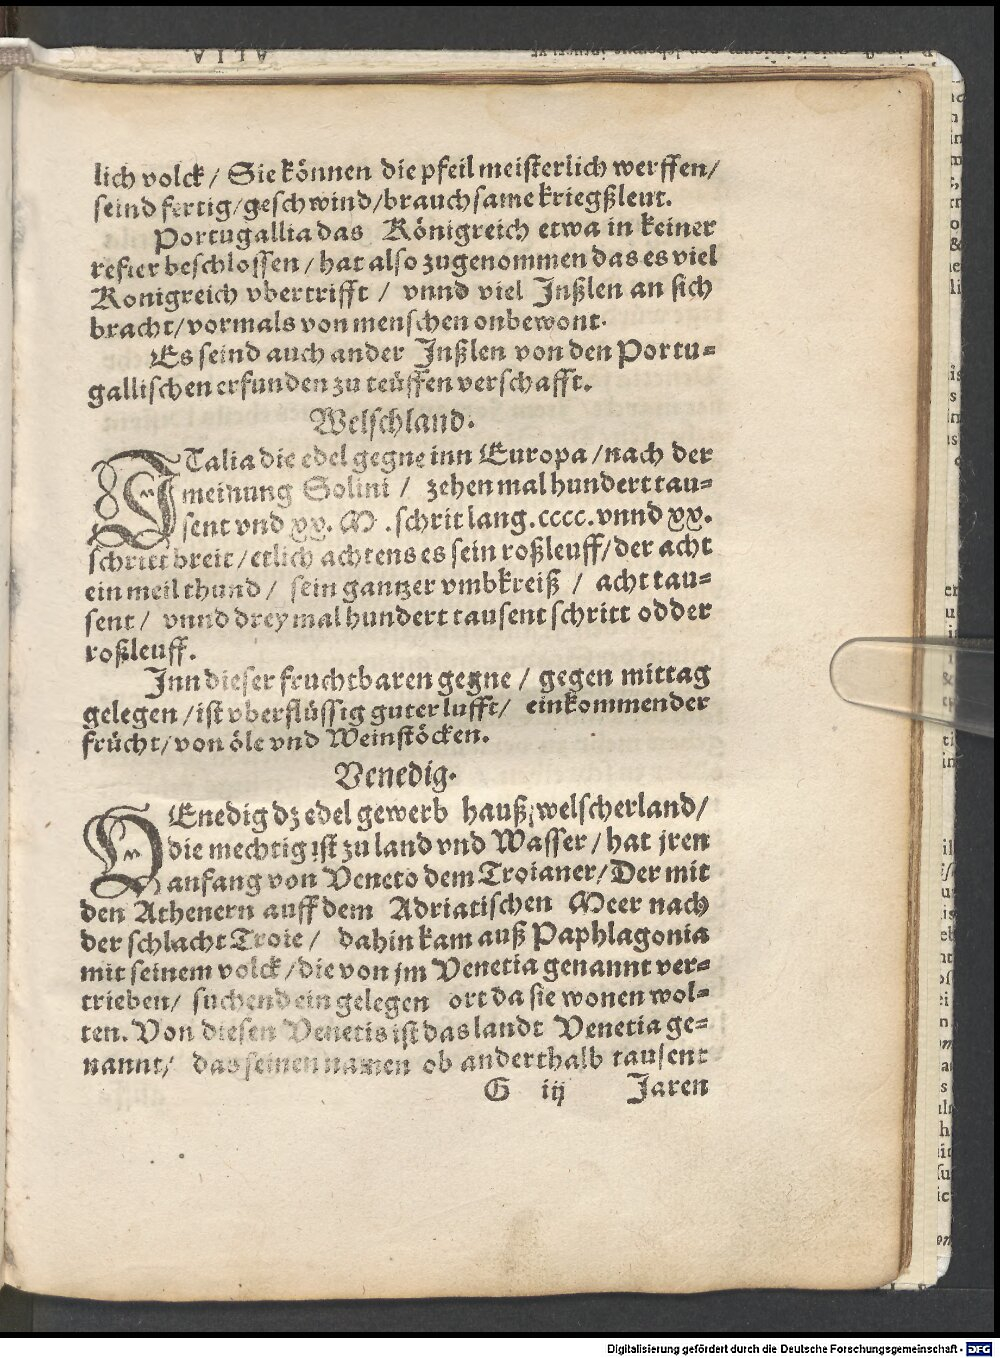 lich volck / Sie können die pfeil meisterlich werffen /
seind fertig / geschwind / brauchsame kriegßleut.
Portugallia das Königreich etwa in keiner
refier beschlossen / hat also zugenommen das es viel
Konigreich vbertrifft / vnnd viel Jnßlen an sich
bracht / vormals von menschen onbewont.
Es seind auch ander Jnßlen von den Portu-
gallischen erfunden zu teüffen verschafft.
Welschland.
ITalia die edel gegne inn Europa / nach der
meinung Solini / zehen mal hundert tau-
sent vnd xx. M. schrit lang. cccc. vnnd xx.
schritt breit / etlich achtens es sein roßleuff / der acht
ein meil thund / sein gantzer vmbkreiß / acht tau-
sent / vnnd drey mal hundert tausent schritt odder
roßleuff.
Jnn dieser fruchtbaren gegne / gegen mittag
gelegen / ist vberflüssig guter lufft / einkommender
frücht / von öle vnd Weinstöcken.
Venedig.
VEnedig dz edel gewerb hauß welscherland /
die mechtig ist zu land vnd Wasser / hat jren
anfang von Veneto dem Troianer / Der mit
den Athenern auff dem Adriatischen Meer nach
der schlacht Troie / dahin kam auß Paphlagonia
mit seinem volck / die von jm Venetia genannt ver-
trieben / suchend ein gelegen ort da sie wonen wol-
ten. Von diesen Venetis ist das landt Venetia ge-
nannt / das seinen namen ob anderthalb tausent
G iij Jaren
Digitalisierung gefördert durch die Deutsche Forschungsgemeinschaft - DFG